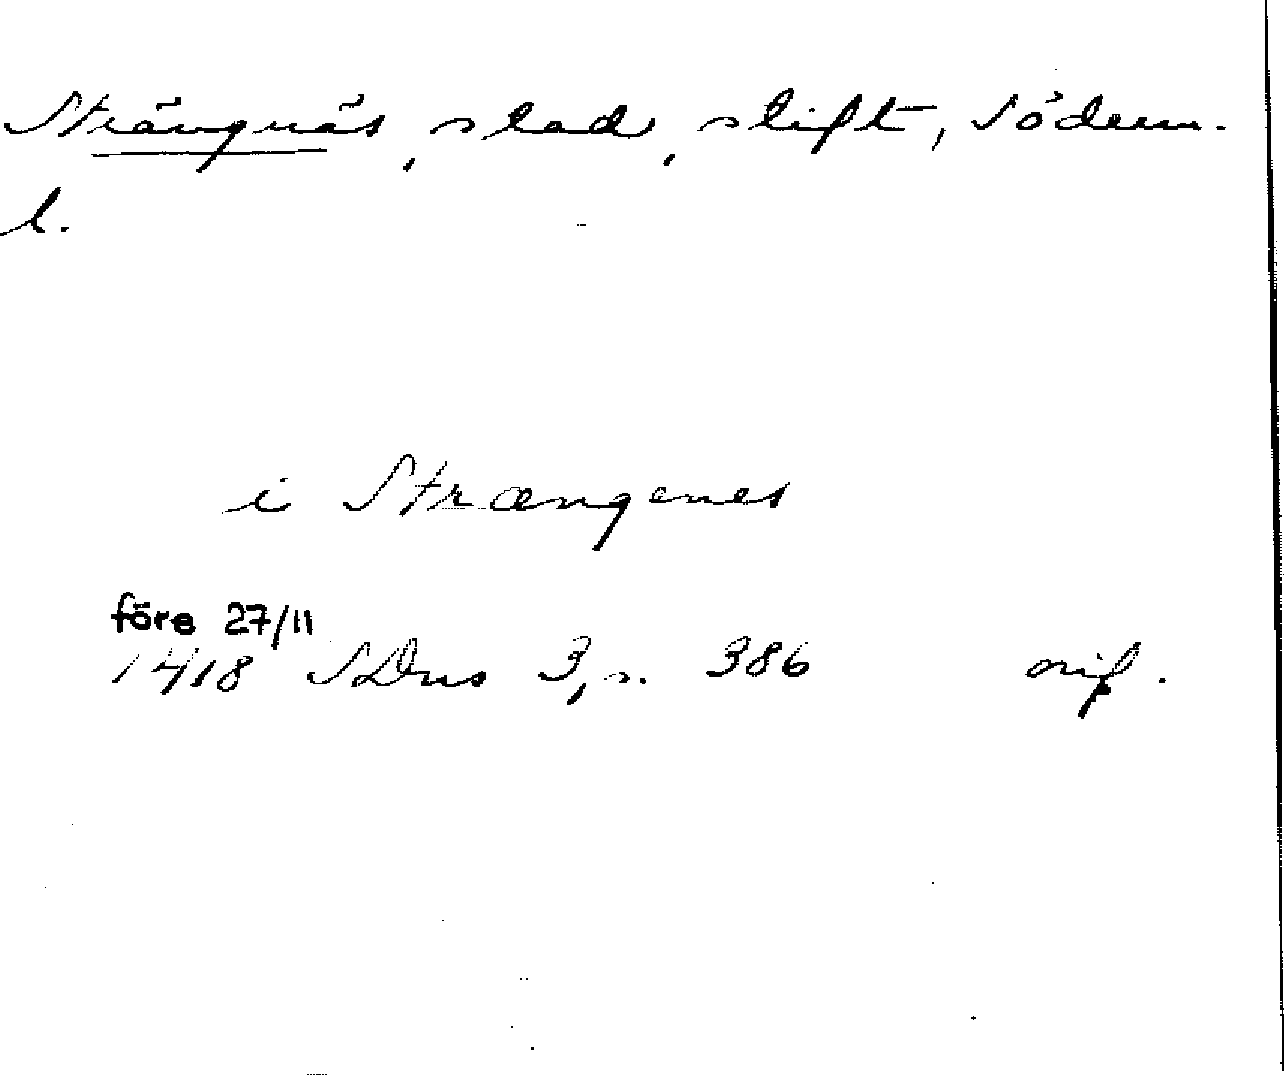 Strängnäs, stad, stift, Söderm.
l.
i Strængenes
före 27/11
1418 SDns 3, s. 386 nif.